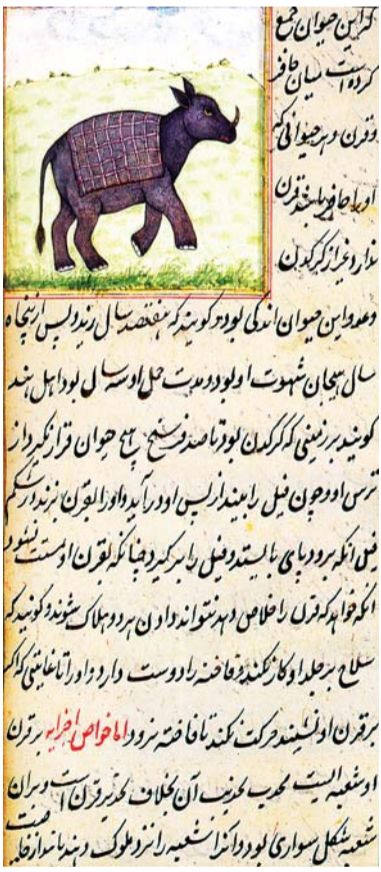 کر این حیوان جمع
کرده است میان حافر
وقرن و هر حیوانی که
او را حافر باشد قرن
ندارد غیر از کرکدن
وعدد این حیوان اندکی بود و کویند که هفتصد سال زید و پس از پنجاه
سال هیجان شهوت او بود و مدت حمل او سه سال بود اهل هند
کویند بر زمینی که کرکدن بود تا صد فرسنخ هیچ حیوان قرار نکیرد از
ترس او و چون فیل را بیند از پس او در آید و او را بقرن بزند در شکم
فیل آنکه بر دو پای بایستد و فیل را بر کیرد چنانکه بقرن او
آنکه خواهد که قرن را خلاص دهد نتواند دادن هر دو هلاک شوند و کویند که
سلاح بر جلد او کار نکند و فاخته را دوست دارد و او را تا غایتی که اکر
بر قرن او نشیند حرکت نکند تا فاخته برود اما خواص اجزایه بر قرن
او شعبه ایست محدب تحدیب آن بخلاف تحدیب قرن است و بران
شعبه شکل سواری بود و آن شعبه را نزد ملوک